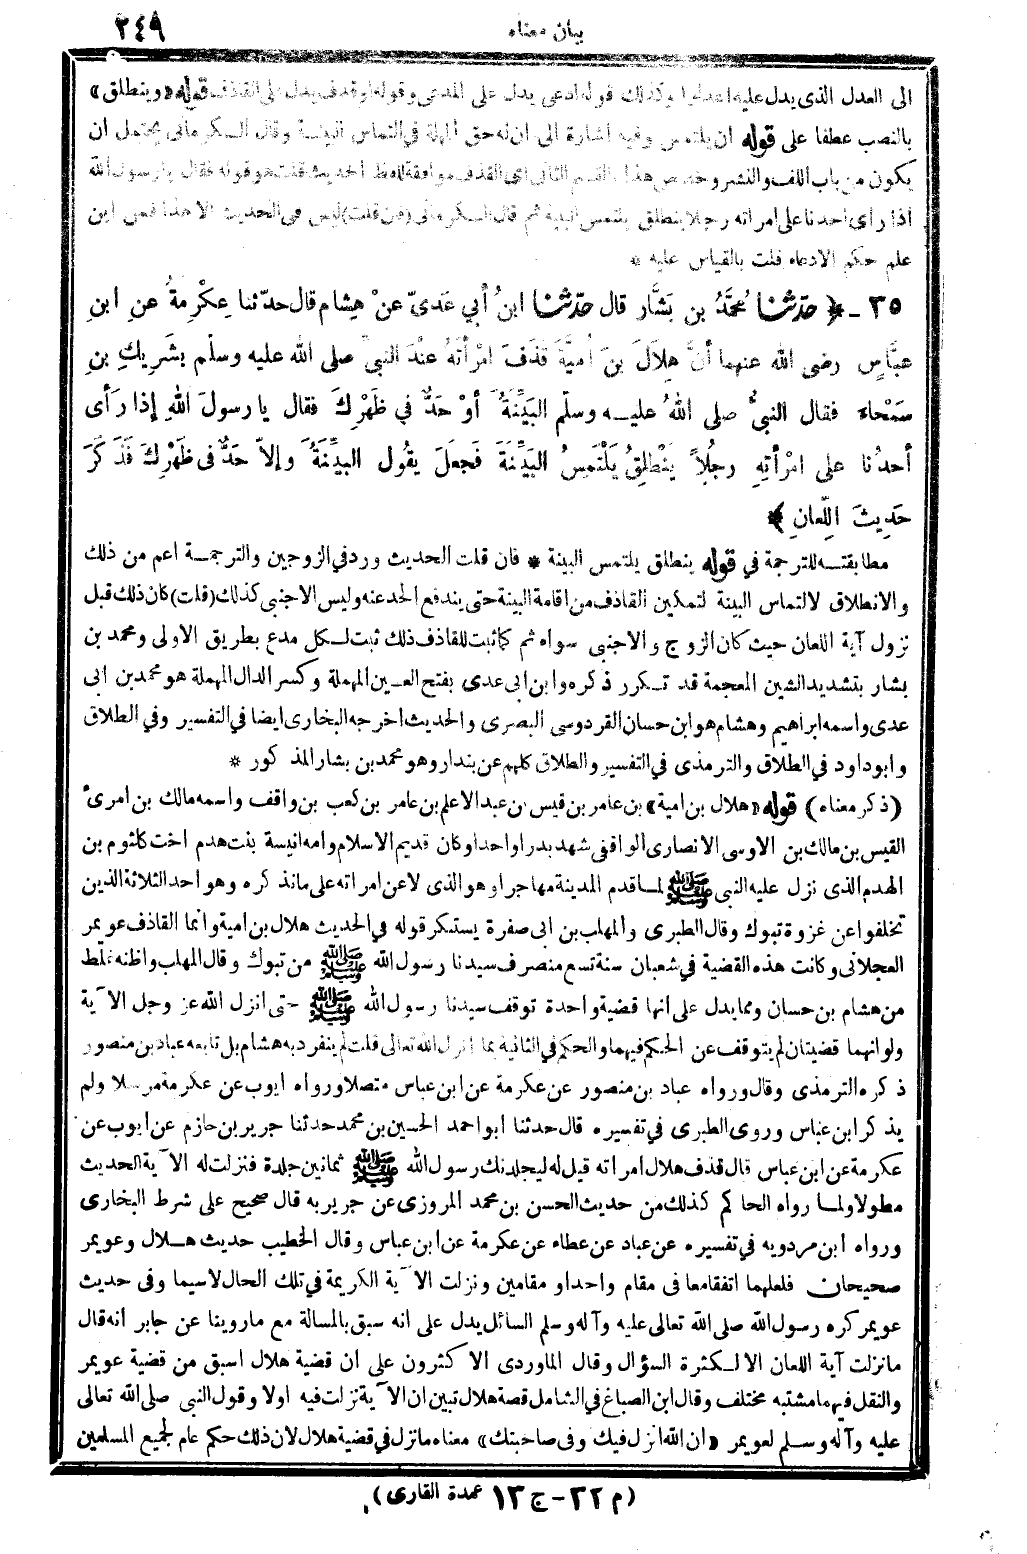 بيان معناه
٢٤٩
الى العدل الذى يدل عليه اعدلوا وكذلك قوله ادعى يدل على المدعى وقوله او قذف يدل على القذف قوله «وينطلق»
بالنصب عطفا على قوله ان يلتمس وفيه اشارة الى ان له حق المهلة في التماس البينة وقال الكرمانى يحتمل ان
يكون من باب اللف والنشر وخصص هذا بالقسم الثانى اى القذف موافقة للفظ الحديث قلت هو قوله فقال يا رسول الله
اذا رأى احدنا على امرأته رجلا ينطلق يلتمس البينة ثم قال الكرمانى (فان قلت) ليس في الحديث الا هذا فمن اين
علم حكم الادعاء قلت بالقياس عليه *
٣٥ - ﴿ حدّثنا مُحَمَّدُ بن بَشَّار قال حدّثنا ابنُ أبي عَدىّ عنْ هِشام قال حدّثنا عِكْرِمةُ عن ابنِ
عبَّاسٍ رضى الله عنهما أنَّ هِلاَلَ بنَ أُميَّةَ قذَفَ امْرأتَهُ عنْدَ النبيِّ صلى الله عليه وسلّم بشَرِيكِ بنِ
سَمْحاءَ فقال النبيُّ صلى اللهُ عليه وسلّم البَيِّنةُ أوْ حَدٌّ في ظَهْرِكَ فقال يا رسولَ اللهِ إذا رَأى
أحدُنا على امْرَأتِهِ رجُلاً يَنْطَلِقُ يَلْتَمِسُ البَيِّنَةَ فَجعَلَ يقُول البيِّنَةُ وإلاّ حَدٌّ فى ظَهْرِكَ فَذَكَرَ
حَدِيثَ اللِّعانِ ﴾
مطابقته للترجمة في قوله ينطلق يلتمس البينة * فان قلت الحديث ورد في الزوجين والترجمة اعم من ذلك
والانطلاق لالتماس البينة لتمكين القاذف من اقامة البينة حتى يندفع الحد عنه وليس الاجنبى كذلك (قلت) كان ذلك قبل
نزول آية اللعان حيث كان الزوج والاجنبى سواء ثم كما ثبت للقاذف ذلك ثبت لكل مدع بطريق الاولى ومحمد بن
بشار بتشديد الشين المعجمة قد تكرر ذكره وابن ابى عدى بفتح العين المهملة وكسر الدال المهملة هو محمد بن ابى
عدى واسمه ابراهيم وهشام هو ابن حسان القردوسى البصرى والحديث اخرجه البخارى ايضا في التفسير وفي الطلاق
وابو داود في الطلاق والترمذى في التفسير والطلاق كلهم عن بندار وهو محمد بن بشار المذكور *
(ذكر معناه) قوله «هلال بن امية» بن عامر بن قيس بن عبد الاعلم بن عامر بن كعب بن واقف واسمه مالك بن امرئ
القيس بن مالك بن الاوسى الانصارى الواقفى شهد بدرا واحدا وكان قديم الاسلام وامه انيسة بنت هدم اخت كلثوم بن
الهدم الذى نزل عليه النبى ﷺ لما قدم المدينة مهاجرا وهو الذى لاعن امرأته على ما نذكره وهو احد الثلاثة الذين
تخلفوا عن غزوة تبوك وقال الطبرى والمهلب بن ابى صفرة يستنكر قوله في الحديث هلال بن امية وانما القاذف عويمر
العجلانى وكانت هذه القضية في شعبان سنة تسع منصرف سيدنا رسول الله ﷺ من تبوك وقال المهلب واظنه غلط
من هشام بن حسان ومما يدل على أنها قضية واحدة توقف سيدنا رسول الله ﷺ حتى انزل الله عز وجل الآية
ولو انهما قضيتان لم يتوقف عن الحكم فيهما والحكم في الثانية بما انزل الله تعالى قلت لم ينفرد به هشام بل تابعه عباد بن منصور
ذكره الترمذى وقال ورواه عباد بن منصور عن عكرمة عن ابن عباس متصلا ورواه ايوب عن عكرمة مرسلا ولم
يذكر ابن عباس وروى الطبرى في تفسيره قال حدثنا ابو احمد الحسين بن محمد حدثنا جرير بن حازم عن ايوب عن
عكرمة عن ابن عباس قال قذف هلال امرأته قيل له ليجلدنك رسول الله ﷺ ثمانين جلدة فنزلت له الآية الحديث
مطولا ولما رواه الحاكم كذلك من حديث الحسن بن محمد المروزى عن جرير به قال صحيح على شرط البخارى
ورواه ابن مردويه في تفسيره عن عباد عن عطاء عن عكرمة عن ابن عباس وقال الخطيب حديث هلال وعويمر
صحيحان فلعلهما اتفقا معا فى مقام واحد او مقامين ونزلت الآية الكريمة في تلك الحال لاسيما وفى حديث
عويمر كره رسول الله صلى الله تعالى عليه وآله وسلم السائل يدل على انه سبق بالمسألة مع ما روينا عن جابر انه قال
ما نزلت آية اللعان الا لكثرة السؤال وقال الماوردى الاكثرون على ان قضية هلال اسبق من قضية عويمر
والنقل فيهما مشتبه مختلف وقال ابن الصباغ في الشامل قصة هلال تبين ان الآية نزلت فيه اولا وقول النبى صلى الله تعالى
عليه وآله وسلم لعويمر «ان الله انزل فيك وفى صاحبتك» معناه ما نزل في قضية هلال لان ذلك حكم عام لجميع المسلمين
(م ٣٢ - ج ١٣ عمدة القارى)